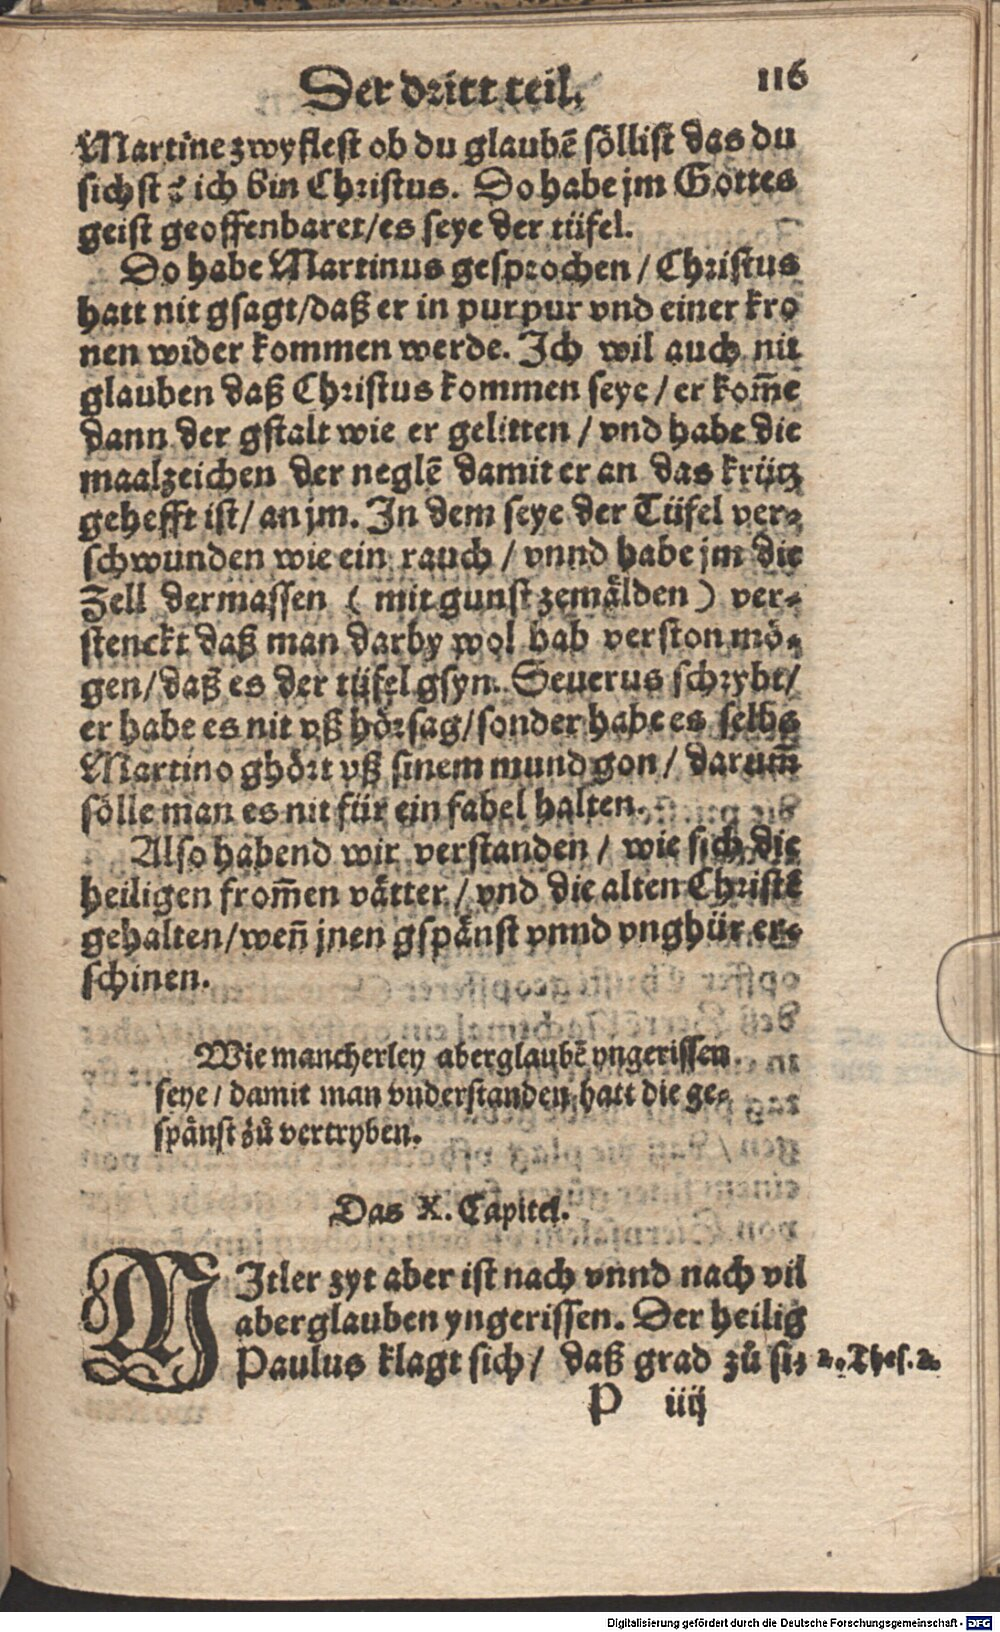 Der dritt teil. 116
Martine zwyflest ob du glaubē söllist das du
sichst? ich bin Christus. Do habe jm Gottes
geist geoffenbaret/es seye der tüfel.
Do habe Martinus gesprochen / Christus
hatt nit gsagt/daß er in purpur vnd einer kro
nen wider kommen werde. Ich wil auch nit
glauben daß Christus kommen seye / er kom̄e
dann der gstalt wie er gelitten / vnd habe die
maalzeichen der neglē damit er an das krütz
gehefft ist/ an jm. In dem seye der Tüfel ver⸗
schwunden wie ein rauch / vnnd habe jm die
Zell dermassen ( mit gunst zemälden ) ver⸗
stenckt daß man darby wol hab verston mö⸗
gen/daß es der tüfel gsyn. Seuerus schrybt/
er habe es nit vß hörsag/sonder habe es selbs
Martino ghört vß sinem mund gon / darum̄
sölle man es nit für ein fabel halten.
Also habend wir verstanden / wie sich die
heiligen from̄en vätter / vnd die alten Christē
gehalten/wen̄ jnen gspänst vnnd vnghür er⸗
schinen.
Wie mancherley aberglaubē yngerissen
seye / damit man vnderstanden hatt die ge⸗
spänst zů vertryben.
Das X. Capitel.
MItler zyt aber ist nach vnnd nach vil
aberglauben yngerissen. Der heilig
Paulus klagt sich/ daß grad zů si⸗ 2. Thes. 2.
P iiij
Digitalisierung gefördert durch die Deutsche Forschungsgemeinschaft - DFG